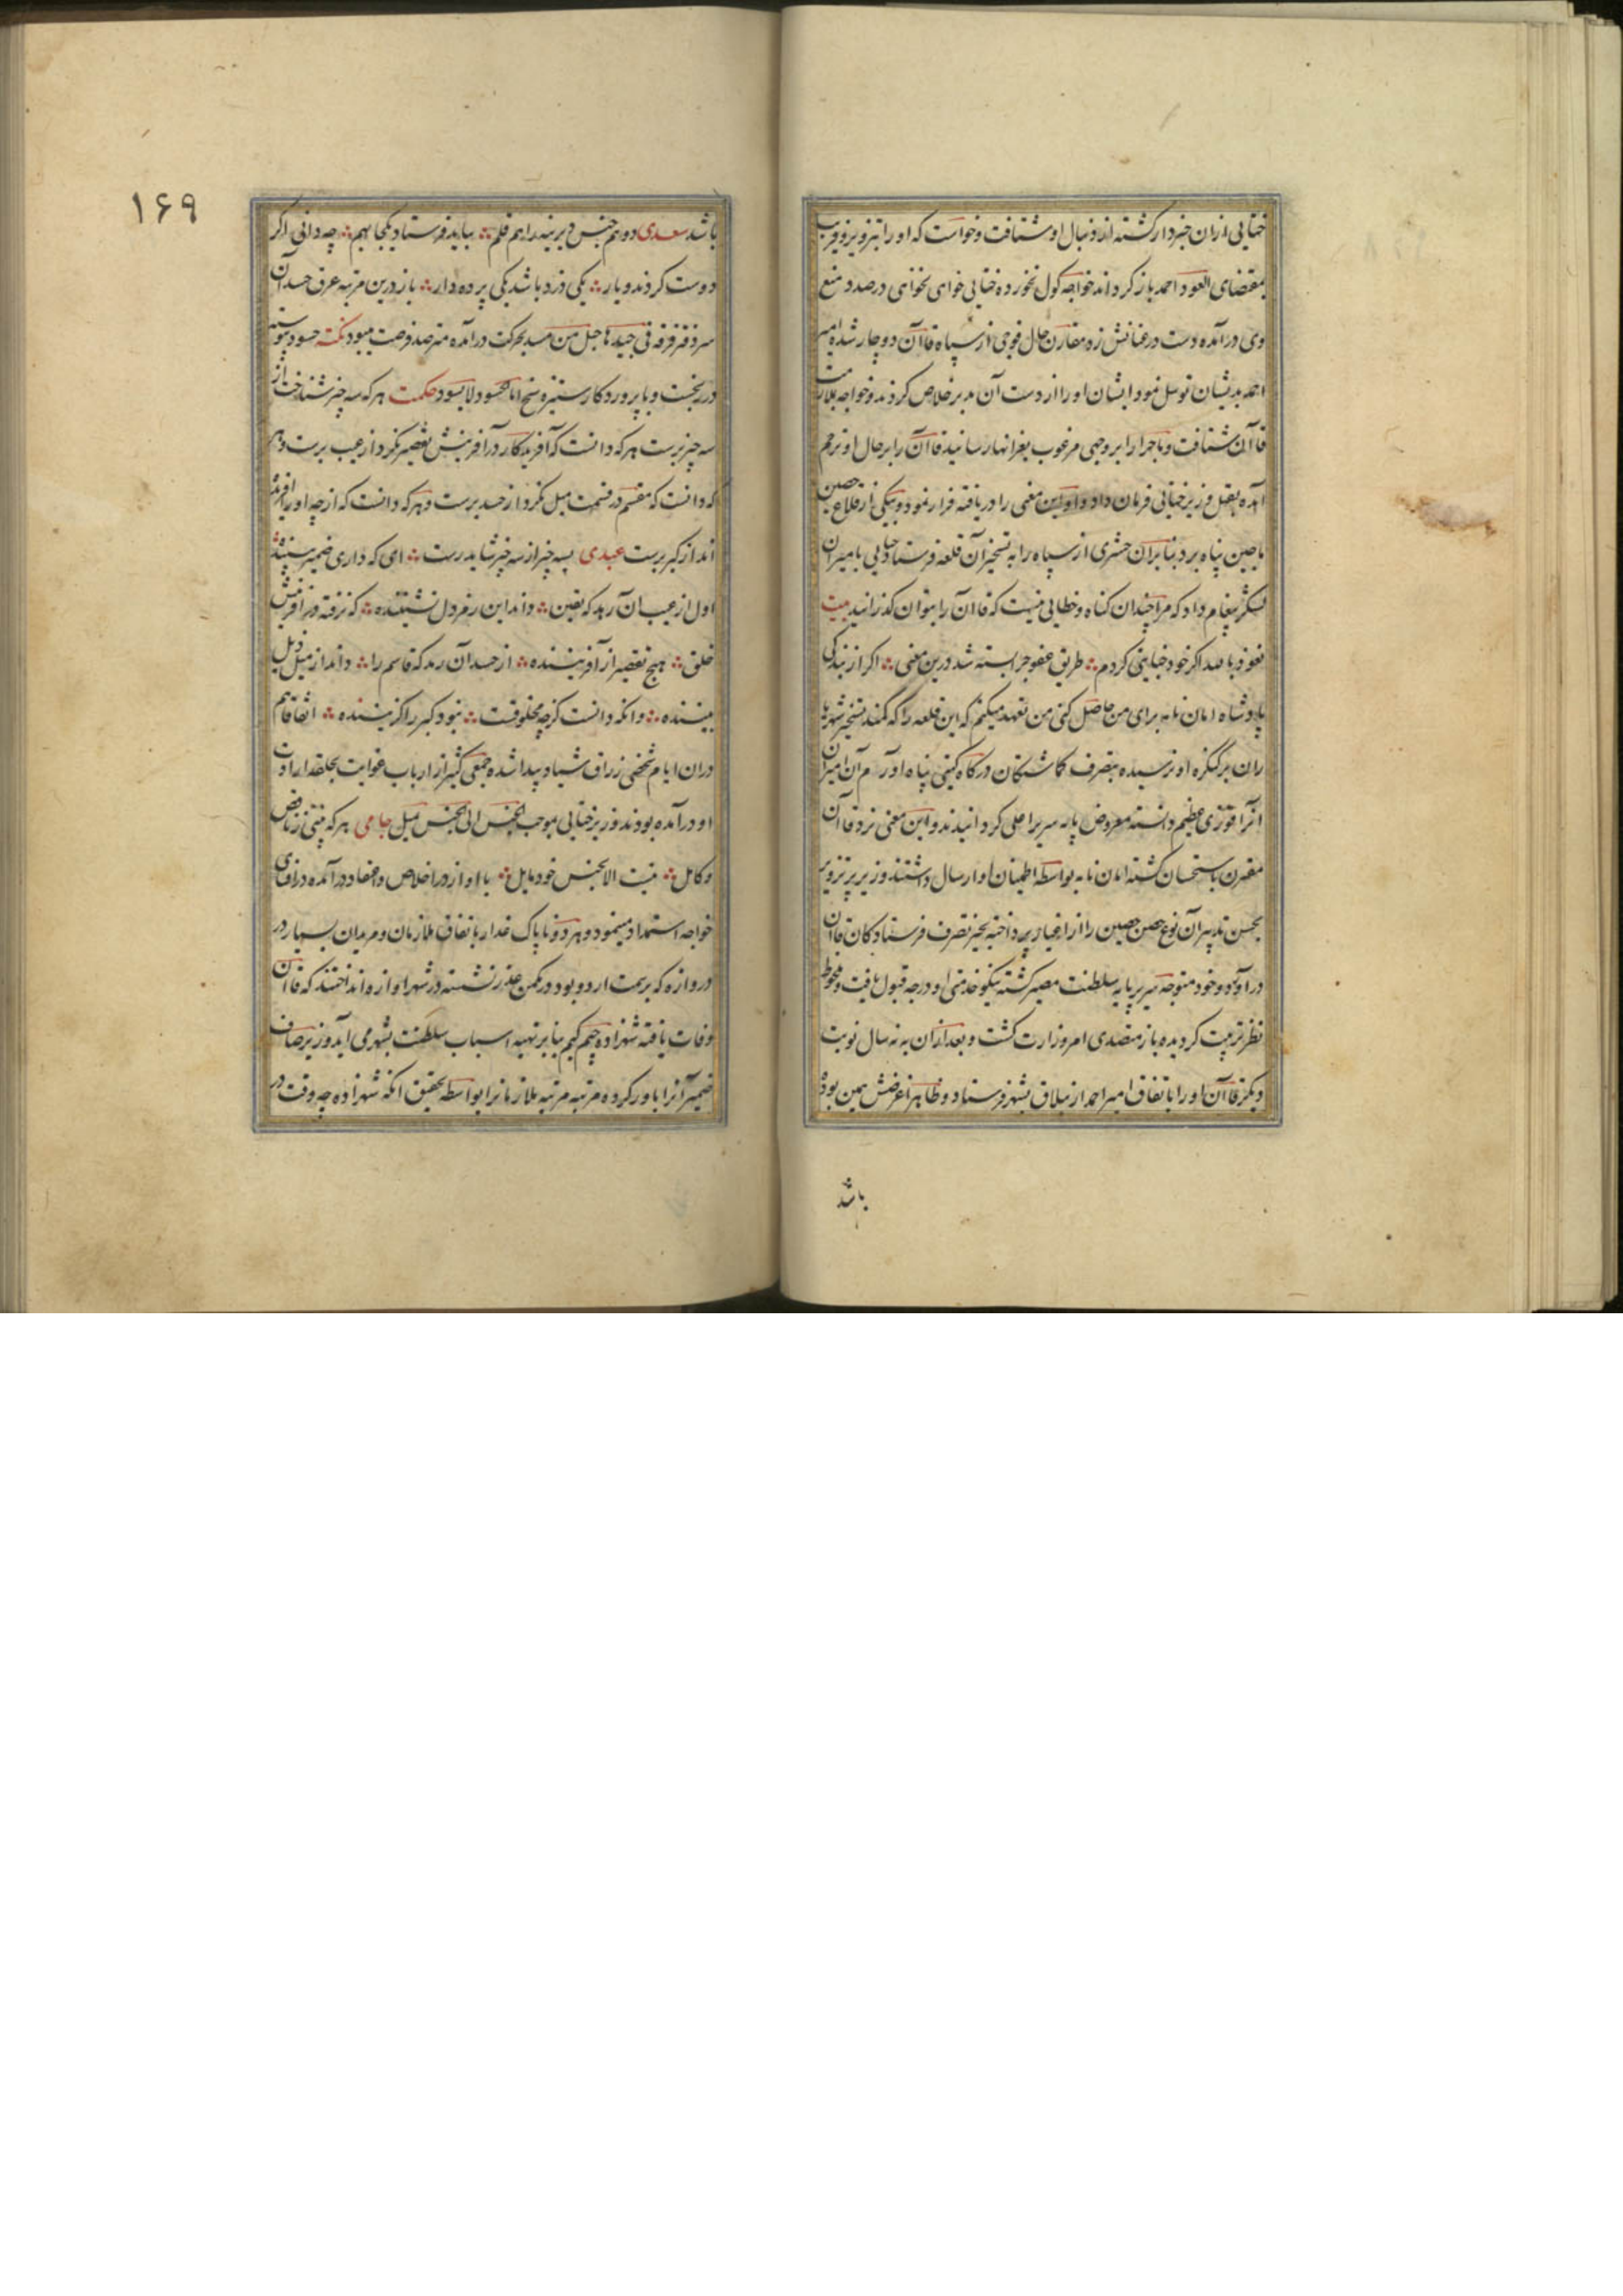 ختایی ازان خبردار گشته از دنبال او شتافت و خواست که او را بتزویر و فریب
بمقتضای العود احمد باز گرداند خواجه گول نخورده ختایی خوای نخوای درصدد منع
وی درآمده دست در عنانش زد مقارن حال فوجی از سپاه قاآن دوچار شده امیر
احمد بدیشان توسل نمود ایشان او را از دست آن مدبر خلاص کردند و خواجه بملازمت
قاآن شتافت و ماجرا را بر وجهی مرغوب بعز انهار رسانید قاآن را بر حال او ترحم
آمده بقتل وزیر ختایی فرمان داد و او این معنی را دریافته فرار نمود و بیکی از قلاع حصین
ماچین پناه برد بنابران حشری از سپاه را به تسخیر آن قلعه فرستاد ختایی بامیران
لشکر پیغام داد که مرا چندان گناه و خطایی نیست که قاآن را بتوان گذرانید بیت
نعوذ بالله اگر خود خیانتی کردم طریق عفو چرا بسته شد درین معنی اگر از بندگی
پادشاه امان نامه برای من حاصل کنی من تعهد میکنم که این قلعه را که کمند تسخیر شهریا
ران بر کنگره او نرسیده بتصرف گماشتگان درگاه گیتی پناه اورم آن امیران
انرا فوزی عظیم دانسته معروض پایه سریر اعلی گردانیدند و این معنی نزد قاآن
مقترن باستحسان گشته امان نامه بواسطه اطمینان او ارسال داشتند وزیر پر تزویر
بحسن تدبیر آن نوع حصن حصین را از اغیار پرداخته بحیز تصرف فرستادگان قاآن
درآورد و خود متوجه سریر پایه سلطنت مصیر گشته نیکو خدمتی او درجه قبول یافت و ملحوظ
نظر تربیت گردیده باز متصدی امر وزارت گشت و بعد ازان به نه سال نوبت
دیگر قاآن او را باتفاق امیر احمد از ییلاق بشهر فرستاد و ظاهرا غرضش همین بود
باشد
۱۶۹
باشد سعدی دو همجنس دیرینه را هم قلم نباید فرستاد یکجا بهم چه دانی اگر
دوست گردند و یار یکی دزد باشد یکی پرده دار باز درین مرتبه عرق حسد آن
سر دفتر فرقه فی جیدها حبل من مسد بحرکت درآمده مترصد فرصت میبود نکته حسود پیوسته
در رنجست و با پروردگار ستیزه سنج اما الحسود لا یسود حکمت هر که سه چیز شناخت از
سه چیز برست هر که دانست که آفریدگار در آفرینش تقصیر نکرد از عیب برست و هر
که دانست که مقسم در قسمت میل نکرد از حسد برست و هر که دانست که از چه او را آفریده
اند از کبر برست عبدی بسه چیز از سه چیز شاید رست ای که داری ضمیر
اول از عیب آن رهد که یقین داند این رمز دل نشیننده که نرفته در آفرینش
خلق هیچ تقصیر از آفریننده از حسد آن رهد که قاسم را داند از میل دل
بیننده وانکه دانست کز چه مخلوقست نبود کبر را گزیننده اتفاقا هم
دران ایام شخصی زراق شیاد پیدا شده جمعی کثیر از ارباب غوایت بحلقه ارادت
او درآمده بودند وزیر ختایی بموجب الجنس الی الجنس یمیل جامی هر که بینی ز ناقص
و کامل نیست الا بجنس خود مایل با او از در اخلاص و اعتقاد درآمده در افنای
خواجه استمداد مینمود و هر دو ناپاک غدار باتفاق ملازمان و مریدان بسیار در
دروازه که برسمت اردو بود در مکمن غدر نشسته در شهر اوازه انداختند که قاآن
وفات یافته شهزاده چیم کیم بنابر تهیه اسباب سلطنت بشهر می آید وزیر صاف
ضمیر آنرا باور کرده مرتبه مرتبه ملازمانرا بواسطه تحقیق انکه شهزاده چه وقت در